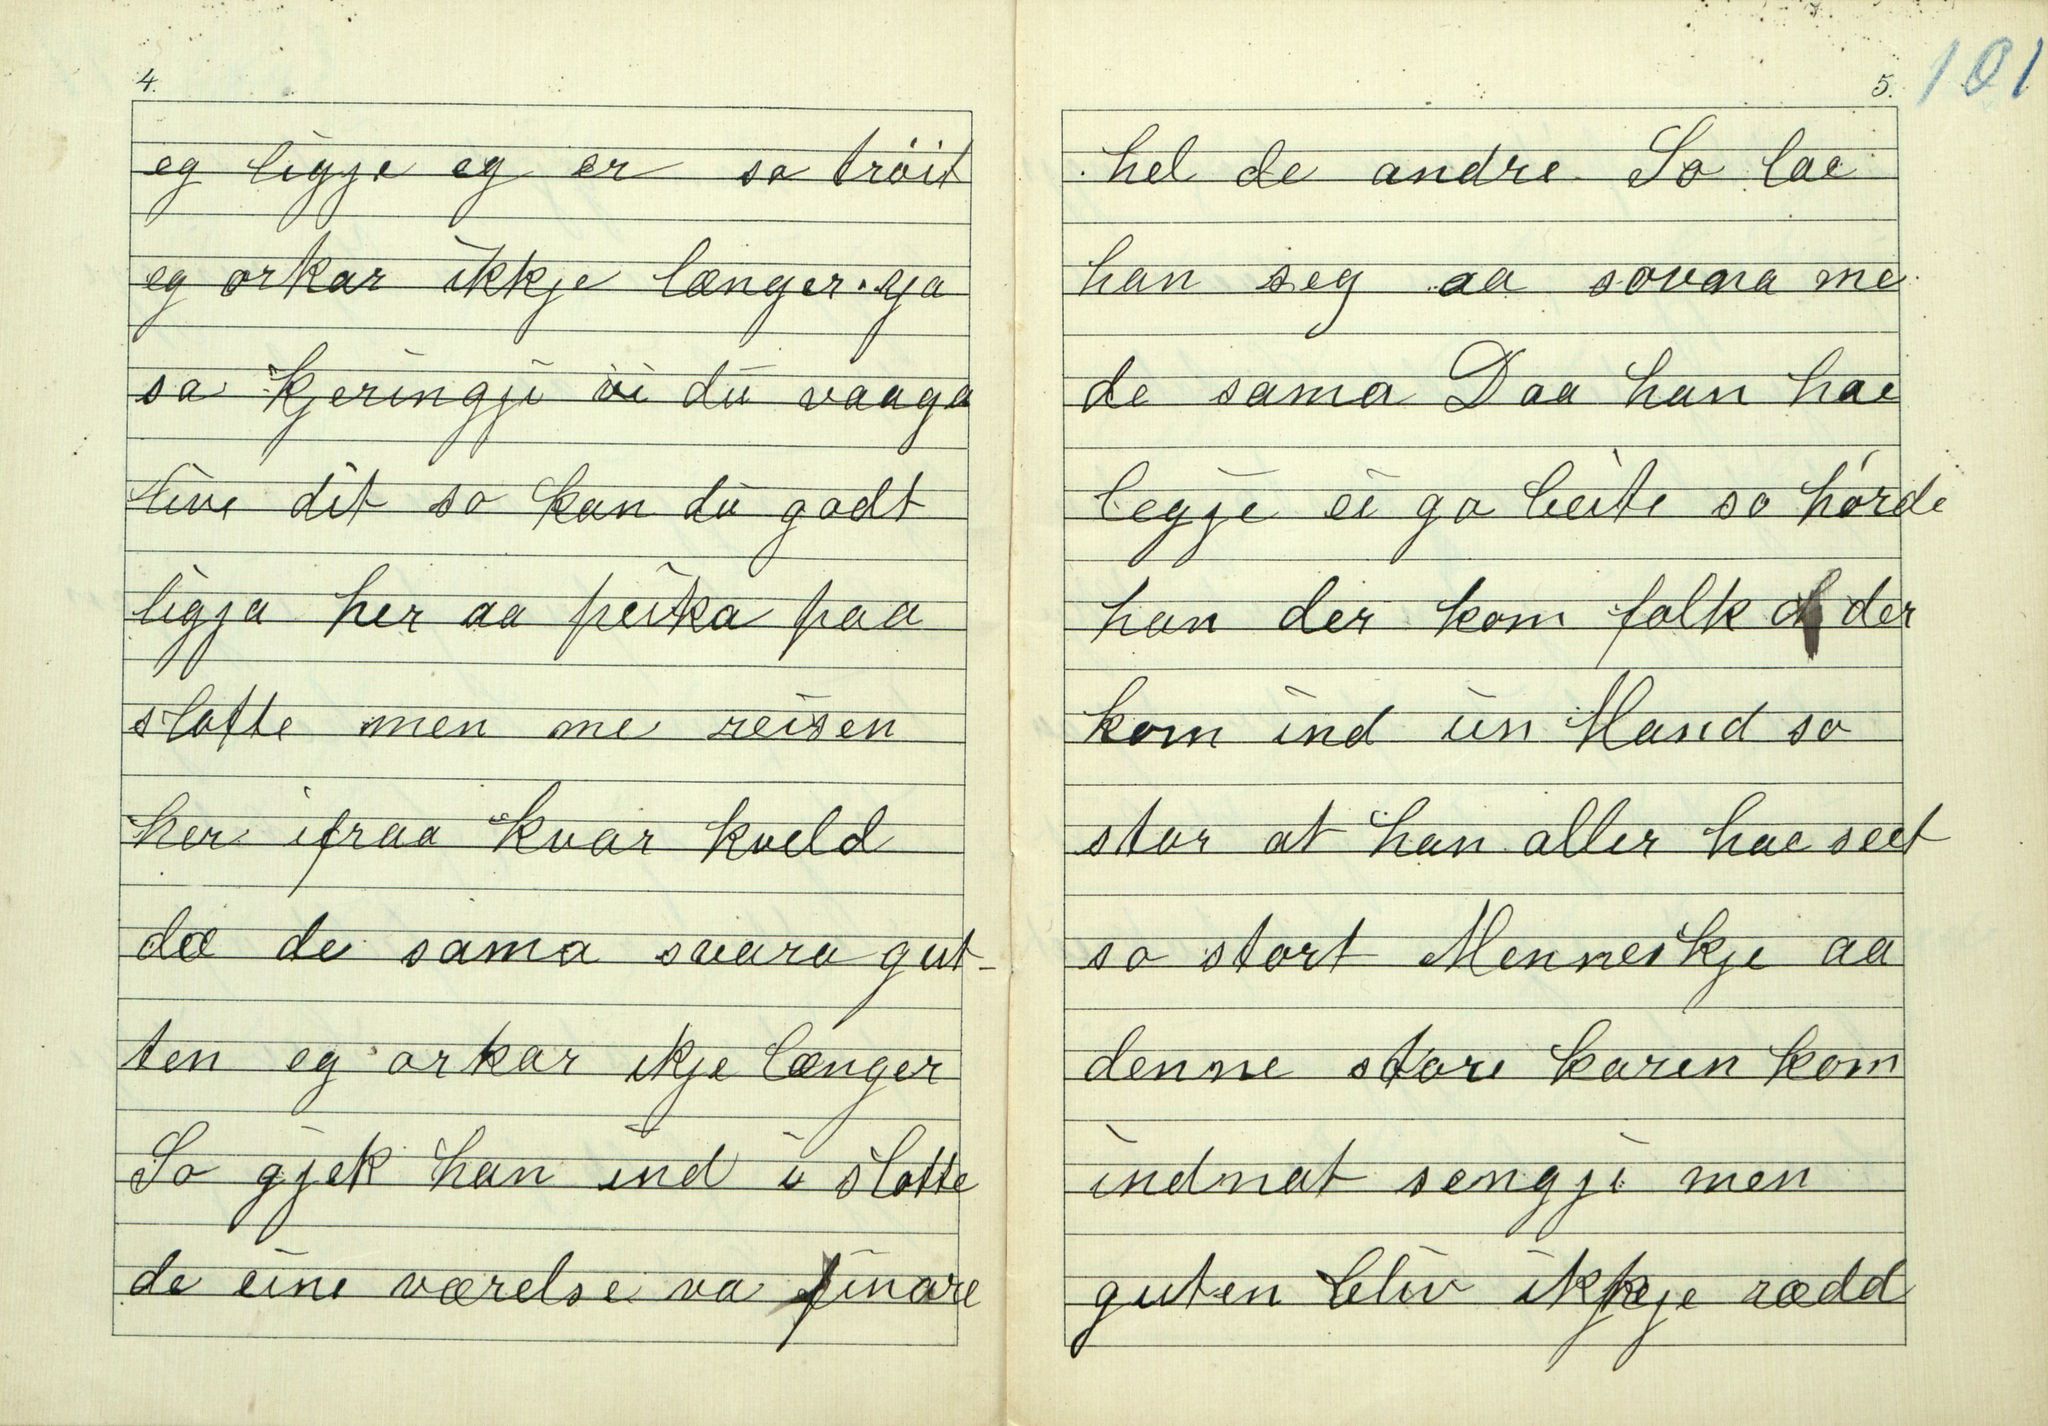 4.
eg ligje eg er so tröit
eg orkar ikkje længer. ja
sa kjeringji vi du vaaga
live dit so kan du godt
ligja her aa peika paa
slotte men me reisen
her ifraa kvar kveld
dæ de sama svara gut-
ten eg orkar ikje længer
So gjek han ind i slotte
de eine værelse va finare
5.
101
hel de andre. So lae
han seg aa sovna me
de sama Daa han hae
legje ei ga leite so hórde
han der kom folk der
kom ind ein Mand so
stor at han aller hae seet
so stort Menneskje aa
denne store karen kom
indnat sengji men
guten bliv ikkje rædd